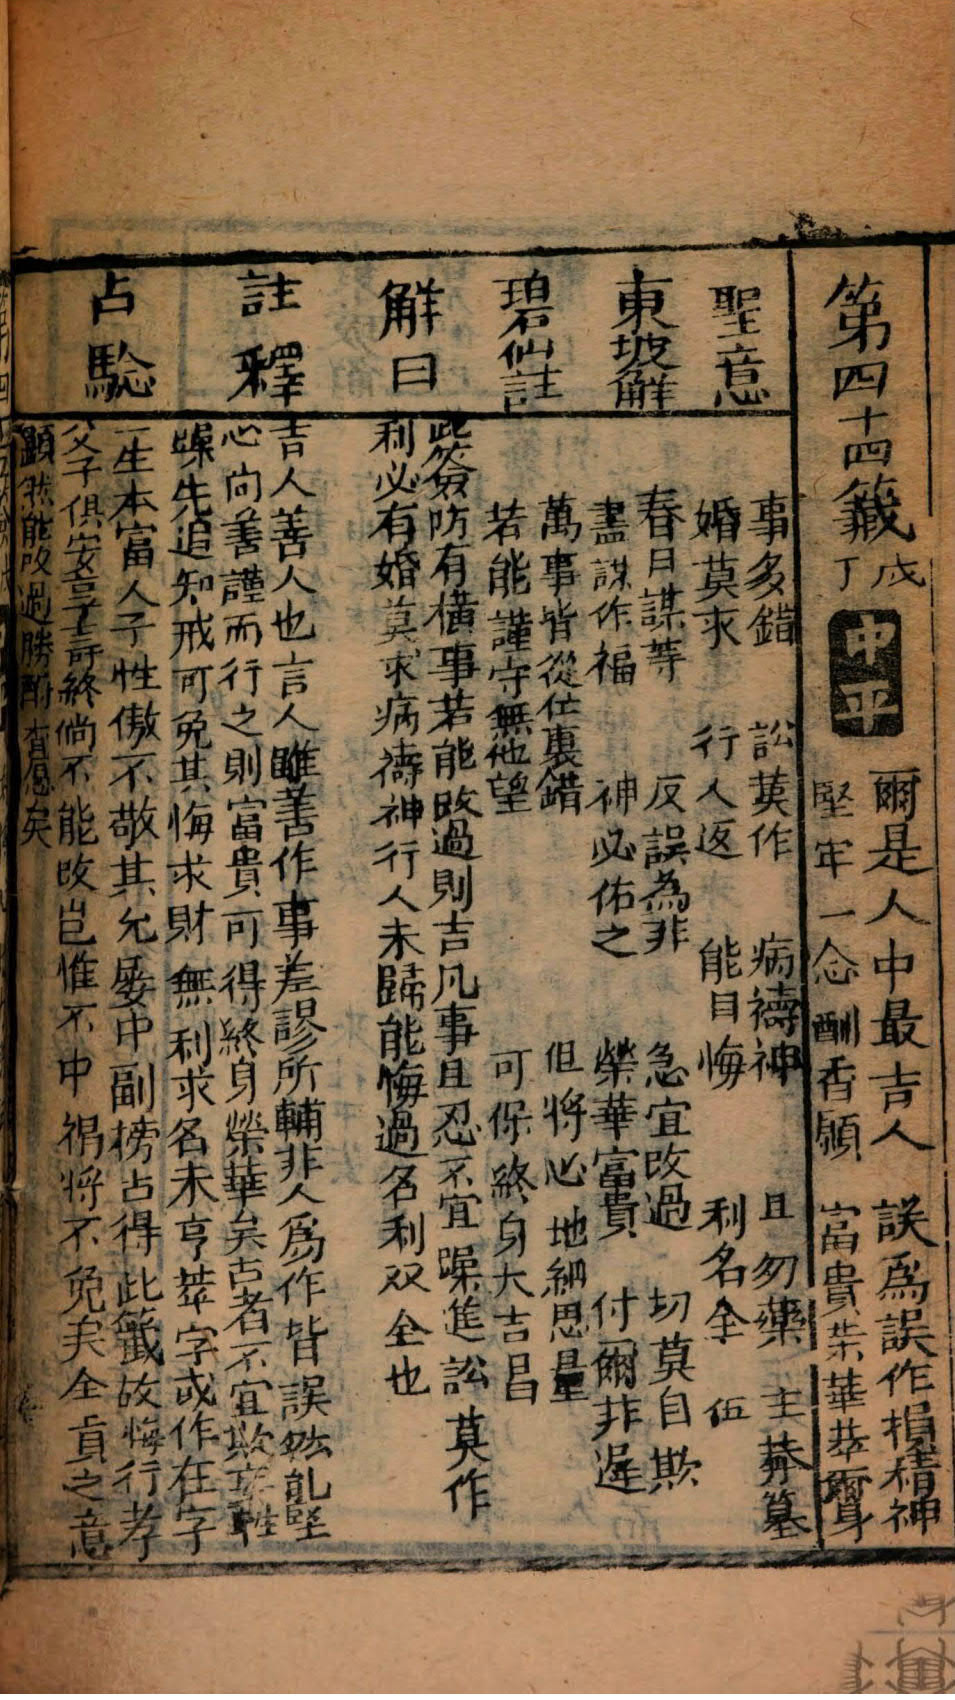 第四十四籤
戊丁
中平
爾是人中最吉人 誤爲誤作損精神
堅牢一念酬香願 富貴荣華萃爾身
聖意
事多錯 訟莫作 病禱神 且勿藥 主葬墓
婚莫求 行人返 能自悔 利名全
東坡觧
春日謀等 反誤為非 急宜改過 切莫自欺
盡誠作福 神必佑之 榮華富貴 付爾非遲
碧仙註
萬事皆從仕裏錯 但將心地細思量
若能謹守無他望 可保終身大吉昌
觧曰
此簽防有橫事若能改過則吉凡事且忍不宜躁進訟莫作
利必有婚莫求病禱神行人未歸能悔過名利双全也
註釋
吉人善人也言人雖善作事差謬所輔非人爲作皆誤然能堅
心向善謹而行之則富貴可得終身榮華矣吉者不宜欺
躁先追知戒可免其悔求財無利求名未亨萃字或作在字
占驗
一生本富人子性傲不敬其兄屡中副榜占得此籤故悔行孝
父子俱安享壽終倘不能改豈惟不中禍將不免矣全頁之意
顕然能改過勝酧斉愿矣